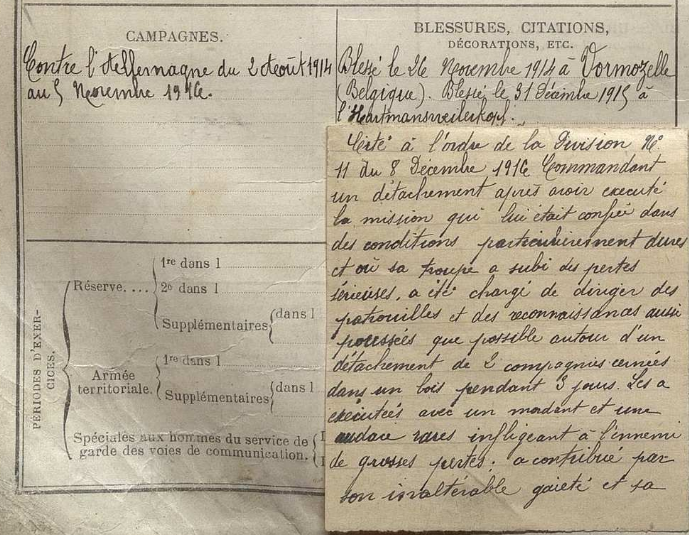 CAMPAGNES.
Contre l'Allemagne du 2 Août 1914
au 5 Novembre 1916.
BLESSURES, CITATIONS,
DÉCORATIONS, ETC.
Blessé le 26 Novembre 1914 à Vormozelle
(Belgique). Blessé le 31 Décembre 1915 à
l'Hartmansweilerkopf.
Cité à l'ordre de la Division N°
11 du 8 Décembre 1916 Commandant
un détachement après avoir executé
la mission qui lui était confiée dans
des conditions particulièrement dures
et où sa troupe a subi des pertes
sérieuses, a été chargé de diriger des
patrouilles et des reconnaissances aussi
poussées que possible autour d'un
détachement de 2 compagnies cernées
dans un bois pendant 3 jours. Les a
exécutées avec un mordant et une
audace rares infligeant à l'ennemi
de grosses pertes; a contribué par
son inaltérable gaieté et sa
PÉRIODES D'EXER-
CICES.
Réserve....
1re dans l
2e dans l
Supplémentaires
dans l
Armée
territoriale.
1re dans l
Supplémentaires
dans l
Spéciales aux hommes du service de
garde des voies de communication.